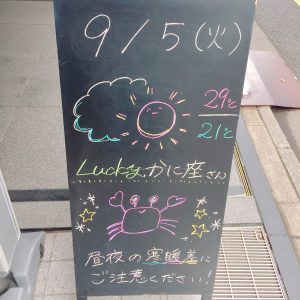 9/5(火)
29℃
21℃
Lucky かに座さん
昼夜の寒暖差に
ご注意ください!